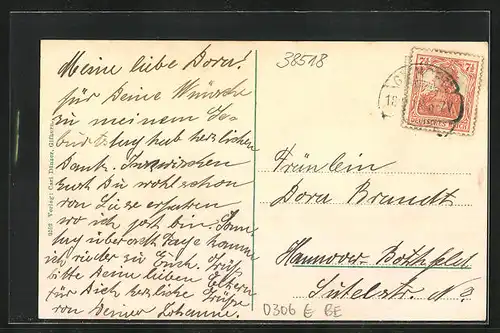 38518
Meine liebe Dora!
für Deine Wünsche
zu meinem Ge-
burtstag hab herzlichen
Dank. Inzwischen
wirst Du wohl schon
von Liese erfahren
wo ich jetzt bin. Sonn
tag über acht Tage komme
ich wieder zu Euch. Grüß
bitte Deine lieben Eltern
für Dich herzliche Grüße
von Deiner Johanne.
Verlag: Carl Dittmer, Gifhorn.
7½ 7½
DEUTSCHES REICH
Fräulein
Dora Brandt
Hannover-Bothfeld
Sutelstr. No.
D306 E BE